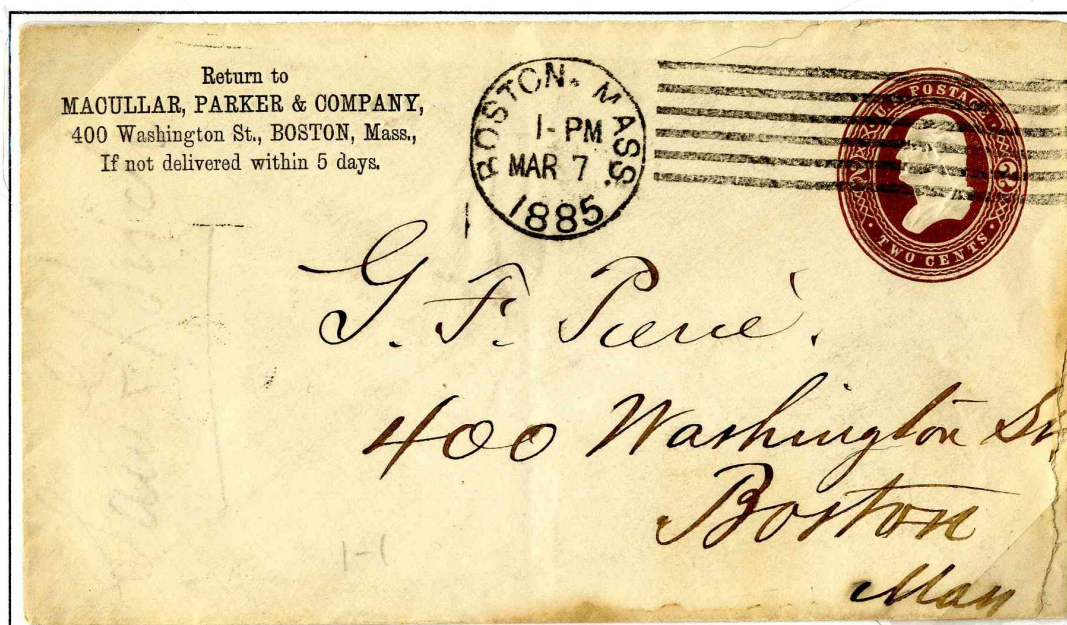 Return to
MACULLAR, PARKER & COMPANY,
400 Washington St., BOSTON, Mass.,
If not delivered within 5 days.
BOSTON, MASS.
1-PM
MAR 7
1885
U.S. POSTAGE
2 2
TWO CENTS
G. F. Pierce.
400 Washington St
Boston
Mass
1-1